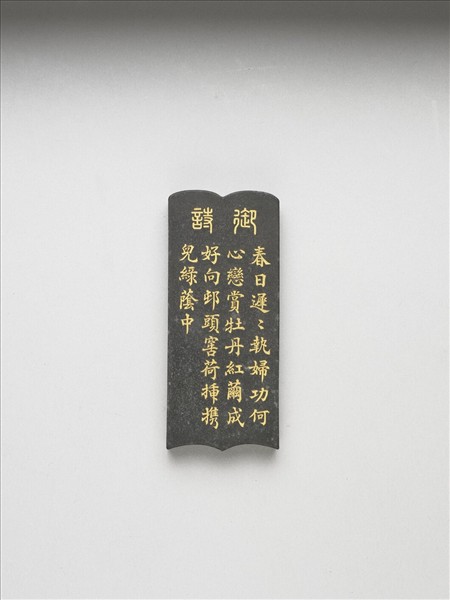 御詩
春日遲〻執婦功何
心戀賞牡丹紅繭成
好向邨頭窖荷挿携
兒綠蔭中